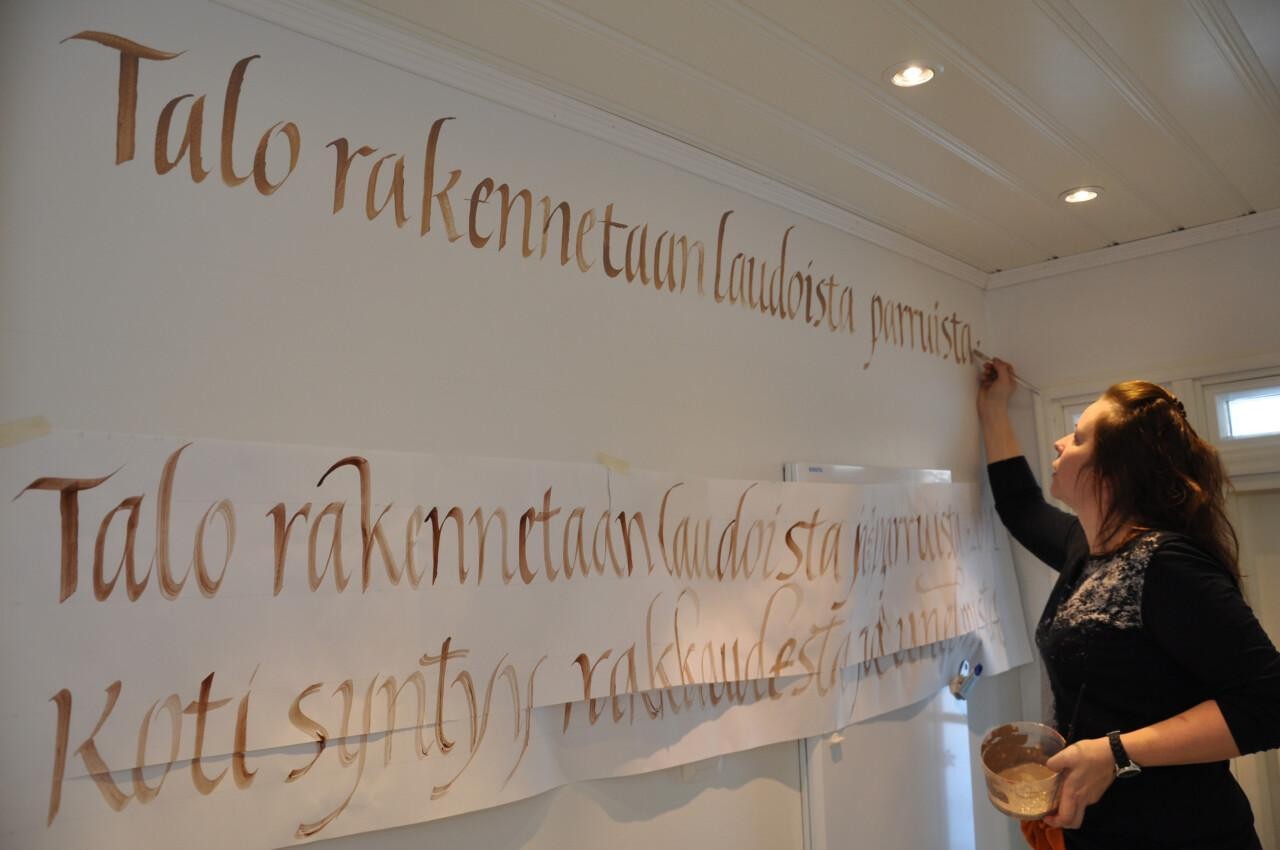 Talo rakennetaan laudoista parruista.
Talo rakennetaan laudoista ja parruista.
Koti syntyy rakkaudesta ja unelmista